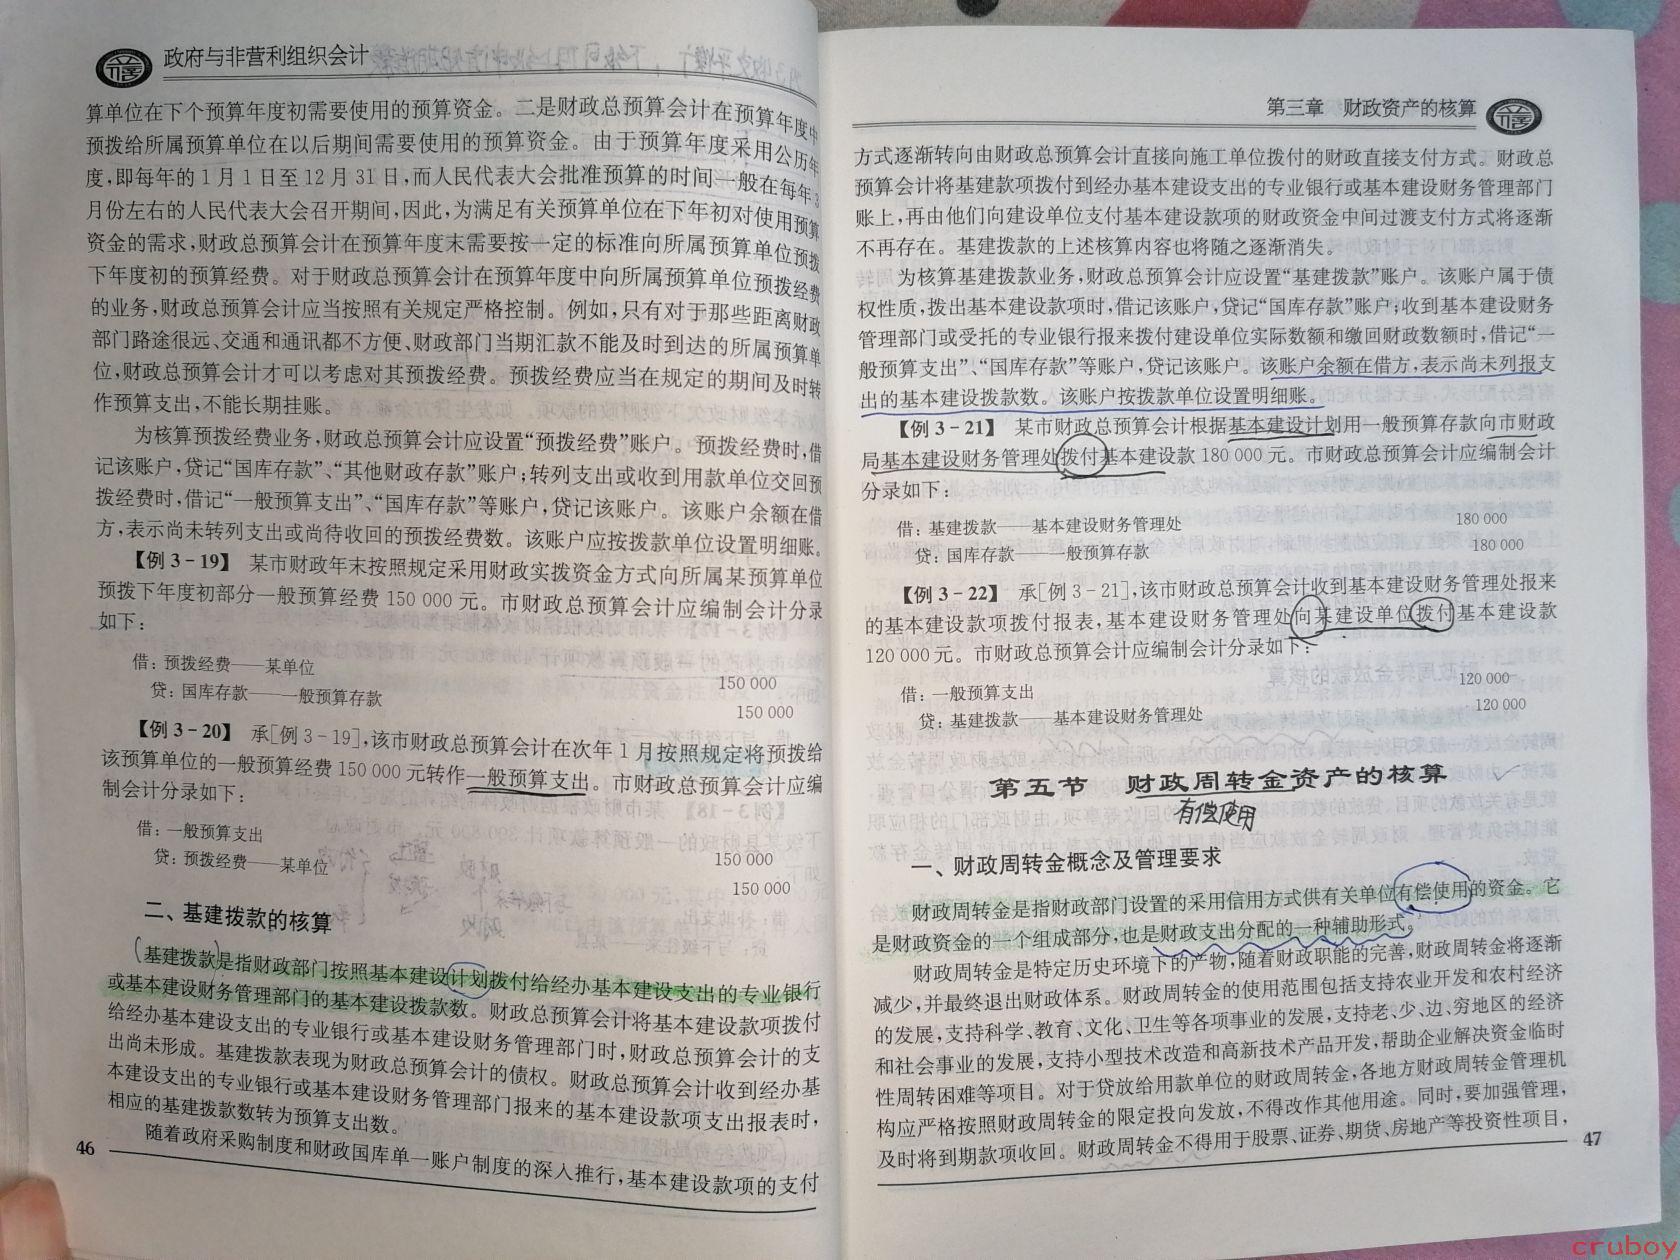 政府与非营利组织会计
算单位在下个预算年度初需要使用的预算资金。二是财政总预算会计在预算年度中
预拨给所属预算单位在以后期间需要使用的预算资金。由于预算年度采用公历年
度,即每年的1月1日至12月31日,而人民代表大会批准预算的时间一般在每年3
月份左右的人民代表大会召开期间,因此,为满足有关预算单位在下年初对使用预算
资金的需求,财政总预算会计在预算年度末需要按一定的标准向所属预算单位预拨
下年度初的预算经费。对于财政总预算会计在预算年度中向所属预算单位预拨经费
的业务,财政总预算会计应当按照有关规定严格控制。例如,只有对于那些距离财政
部门路途很远、交通和通讯都不方便、财政部门当期汇款不能及时到达的所属预算单
位,财政总预算会计才可以考虑对其预拨经费。预拨经费应当在规定的期间及时转
作预算支出,不能长期挂账。
为核算预拨经费业务,财政总预算会计应设置“预拨经费”账户。预拨经费时,借
记该账户,贷记“国库存款”、“其他财政存款”账户;转列支出或收到用款单位交回预
拨经费时,借记“一般预算支出”、“国库存款”等账户,贷记该账户。该账户余额在借
方,表示尚未转列支出或尚待收回的预拨经费数。该账户应按拨款单位设置明细账。
【例3-19】 某市财政年末按照规定采用财政实拨资金方式向所属某预算单位
预拨下年度初部分一般预算经费150 000元。市财政总预算会计应编制会计分录
如下:
借:预拨经费——某单位 150 000
贷:国库存款——一般预算存款 150 000
【例3-20】 承[例3-19],该市财政总预算会计在次年1月按照规定将预拨给
该预算单位的一般预算经费150 000元转作一般预算支出。市财政总预算会计应编
制会计分录如下:
借:一般预算支出 150 000
贷:预拨经费——某单位 150 000
二、基建拨款的核算
基建拨款是指财政部门按照基本建设计划拨付给经办基本建设支出的专业银行
或基本建设财务管理部门的基本建设拨款数。财政总预算会计将基本建设款项拨付
给经办基本建设支出的专业银行或基本建设财务管理部门时,财政总预算会计的支
出尚未形成。基建拨款表现为财政总预算会计的债权。财政总预算会计收到经办基
本建设支出的专业银行或基本建设财务管理部门报来的基本建设款项支出报表时,
相应的基建拨款数转为预算支出数。
随着政府采购制度和财政国库单一账户制度的深入推行,基本建设款项的支付
46
第三章 财政资产的核算
方式逐渐转向由财政总预算会计直接向施工单位拨付的财政直接支付方式。财政总
预算会计将基建款项拨付到经办基本建设支出的专业银行或基本建设财务管理部门
账上,再由他们向建设单位支付基本建设款项的财政资金中间过渡支付方式将逐渐
不再存在。基建拨款的上述核算内容也将随之逐渐消失。
为核算基建拨款业务,财政总预算会计应设置“基建拨款”账户。该账户属于债
权性质,拨出基本建设款项时,借记该账户,贷记“国库存款”账户;收到基本建设财务
管理部门或受托的专业银行报来拨付建设单位实际数额和缴回财政数额时,借记“一
般预算支出”、“国库存款”等账户,贷记该账户。该账户余额在借方,表示尚未列报支
出的基本建设拨款数。该账户按拨款单位设置明细账。
【例3-21】 某市财政总预算会计根据基本建设计划用一般预算存款向市财政
局基本建设财务管理处拨付基本建设款180 000元。市财政总预算会计应编制会计
分录如下:
借:基建拨款——基本建设财务管理处 180 000
贷:国库存款——一般预算存款 180 000
【例3-22】 承[例3-21],该市财政总预算会计收到基本建设财务管理处报来
的基本建设款项拨付报表,基本建设财务管理处向某建设单位拨付基本建设款
120 000元。市财政总预算会计应编制会计分录如下:
借:一般预算支出 120 000
贷:基建拨款——基本建设财务管理处 120 000
第五节 财政周转金资产的核算
有偿使用
一、财政周转金概念及管理要求
财政周转金是指财政部门设置的采用信用方式供有关单位有偿使用的资金。它
是财政资金的一个组成部分,也是财政支出分配的一种辅助形式。
财政周转金是特定历史环境下的产物,随着财政职能的完善,财政周转金将逐渐
减少,并最终退出财政体系。财政周转金的使用范围包括支持农业开发和农村经济
的发展,支持科学、教育、文化、卫生等各项事业的发展,支持老、少、边、穷地区的经济
和社会事业的发展,支持小型技术改造和高新技术产品开发,帮助企业解决资金临时
性周转困难等项目。对于贷放给用款单位的财政周转金,各地方财政周转金管理机
构应严格按照财政周转金的限定投向发放,不得改作其他用途。同时,要加强管理,
及时将到期款项收回。财政周转金不得用于股票、证券、期货、房地产等投资性项目,
47
cruboy